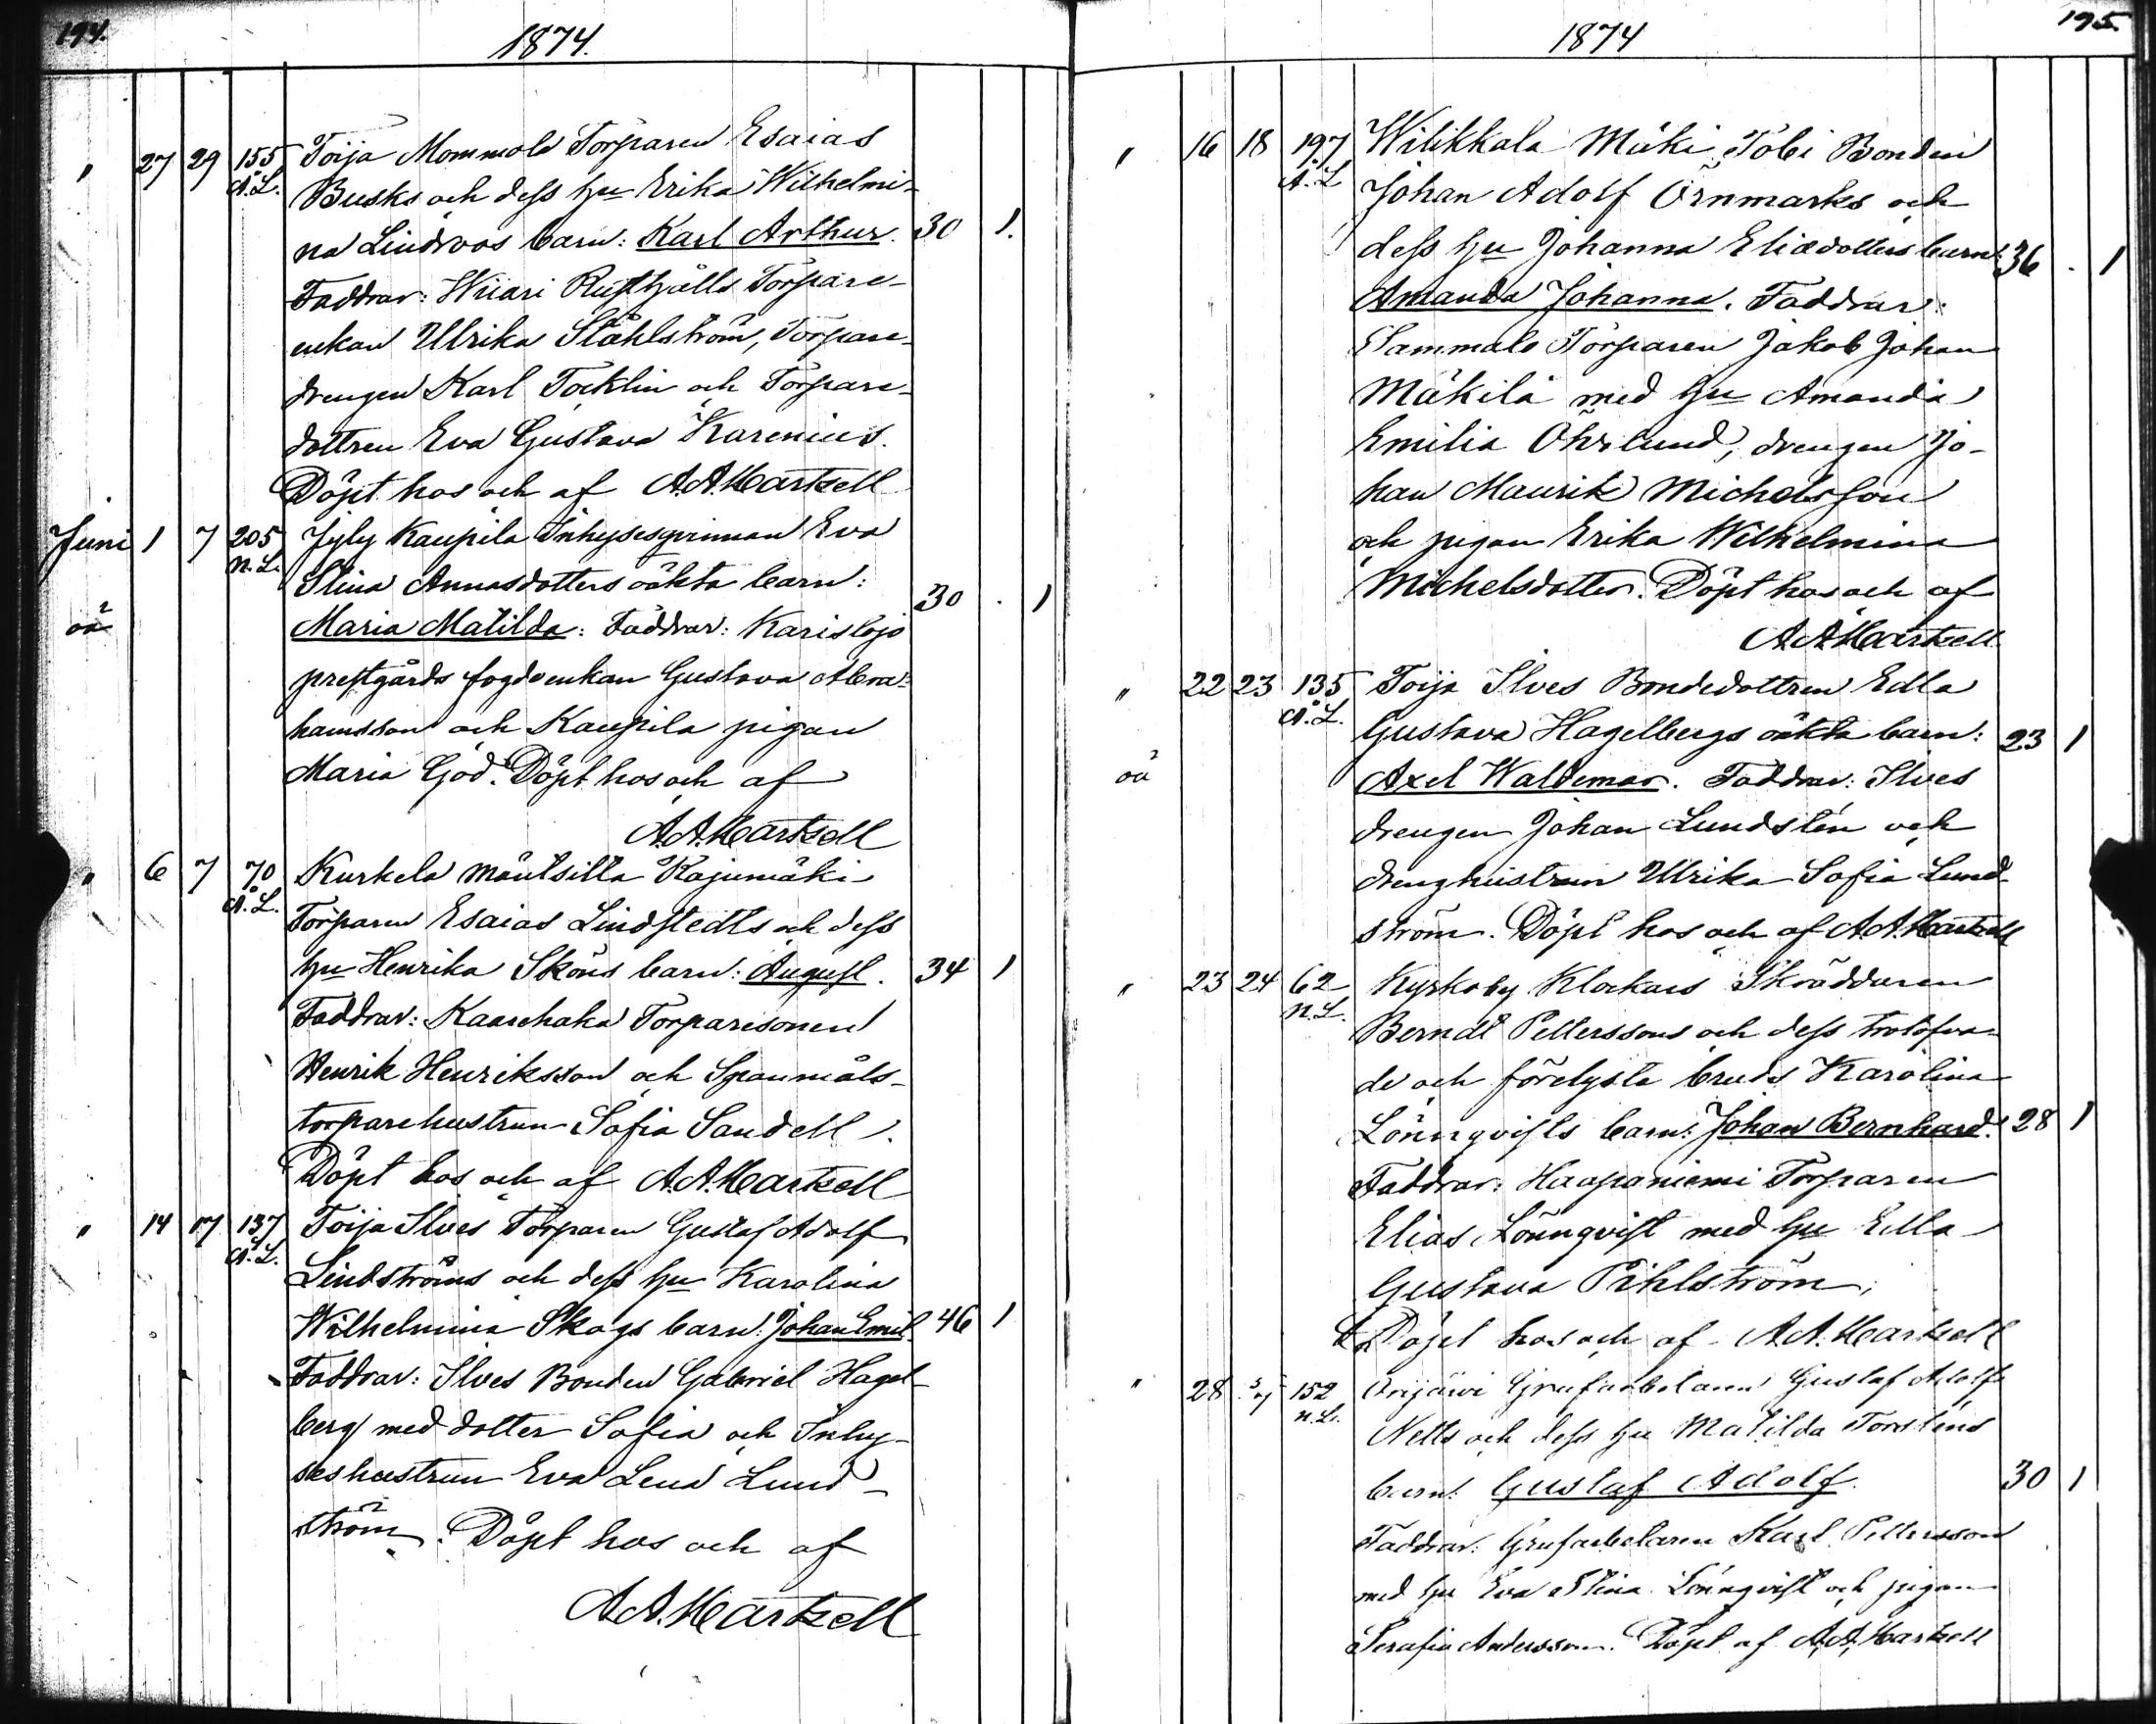 194.
1874.
" 27 29 155 Toija Mommola Torparen Esaias
Å.L. Busks och dess hu Erika Wilhelmi-
na Lindroos barn: Karl Arthur. 30 1.
Faddrar: Wiiari Rusthålls Torpare-
enkan Ulrika Ståhlström, Torpare-
drengen Karl Tocklin och Torpare-
dottren Eva Gustava Karenius.
Döpt hos och af A.A. Hartzell
Juni 1 7 205 Jyly Kaupila Inhysesqvinnan Eva
N.L. Stina Annasdotters oäkta barn:
oä Maria Matilda: Faddrar: Karislojo 30 . 1
prestgårds fogdeenkan Gustava Abra-
hamsson och Kaupila pigan
Maria God. Döpt hos och af
A.A. Hartzell
" 6 7 70 Kurkela Mäntsilta Kajumäki
Å.L. Torparen Esaias Lindstedts och dess
hu Henrika Sköns barn: August. 34 1
Faddrar: Kaarehaka Torparesonen
Henrik Henriksson och Spanmåls-
torparehustrun Sofia Sandell.
Döpt hos och af A.A. Hartzell
" 14 17 137 Toija Ilves Torparen Gustaf Adolf
Å.L. Lindströms och dess hu Karolina
Wilhelmina Skogs barn: Johan Emil 46 1
Faddrar: Ilves Bonden Gabriel Hagel-
berg med dotter Sofia och Inhy-
seshustrun Eva Lena Lund-
ström. Döpt hos och af
A.A. Hartzell
195.
1874
" 16 18 197 Wilikkala Mäki Tobi Bonden
Å.L. Johan Adolf Örnmarks och
dess hu Johanna Eliædotters barn: 36 . 1
Amanda Johanna. Faddrar:
Sammalo Torparen Jakob Johan
Mäkilä med hu Amanda
Emilia Öhrlund, drengen Jo-
han Maurik Michelsson
och pigan Erika Wilhelmina
Michelsdotter. Döpt hos och af
A.A. Hartzell
" 22 23 135 Toija Ilves Bondedottren Edla
Å.L. Gustava Hagelbergs oäkta barn: 23 1
oä Axel Waldemar. Faddrar: Ilves
drengen Johan Lundstén och
drenghustrun Ulrika Sofia Lund-
ström. Döpt hos och af A.A. Hartzell
" 23 24 62 Kyrkoby Klockars Skräddaren
N.L. Berndt Petterssons och dess trolofva-
de och förelysta bruds Karolina
Lönnqvists barn: Johan Bernhard. 28 1
Faddrar: Haapaniemi Torparen
Elias Lönnqvist med hu Edla
Gustava Pihlström,
Döpt hos och af A.A. Hartzell
" 28 152 Orijärvi Grufarbetaren Gustaf Adolf
N.L. Netts och dess hu Matilda Torsténs
barn: Gustaf Adolf. 30 1
Faddrar: Grufarbetaren Karl Pettersson
med hu Eva Stina Lönnqvist och pigan
Serafia Andersson. Döpt af A.A. Hartzell